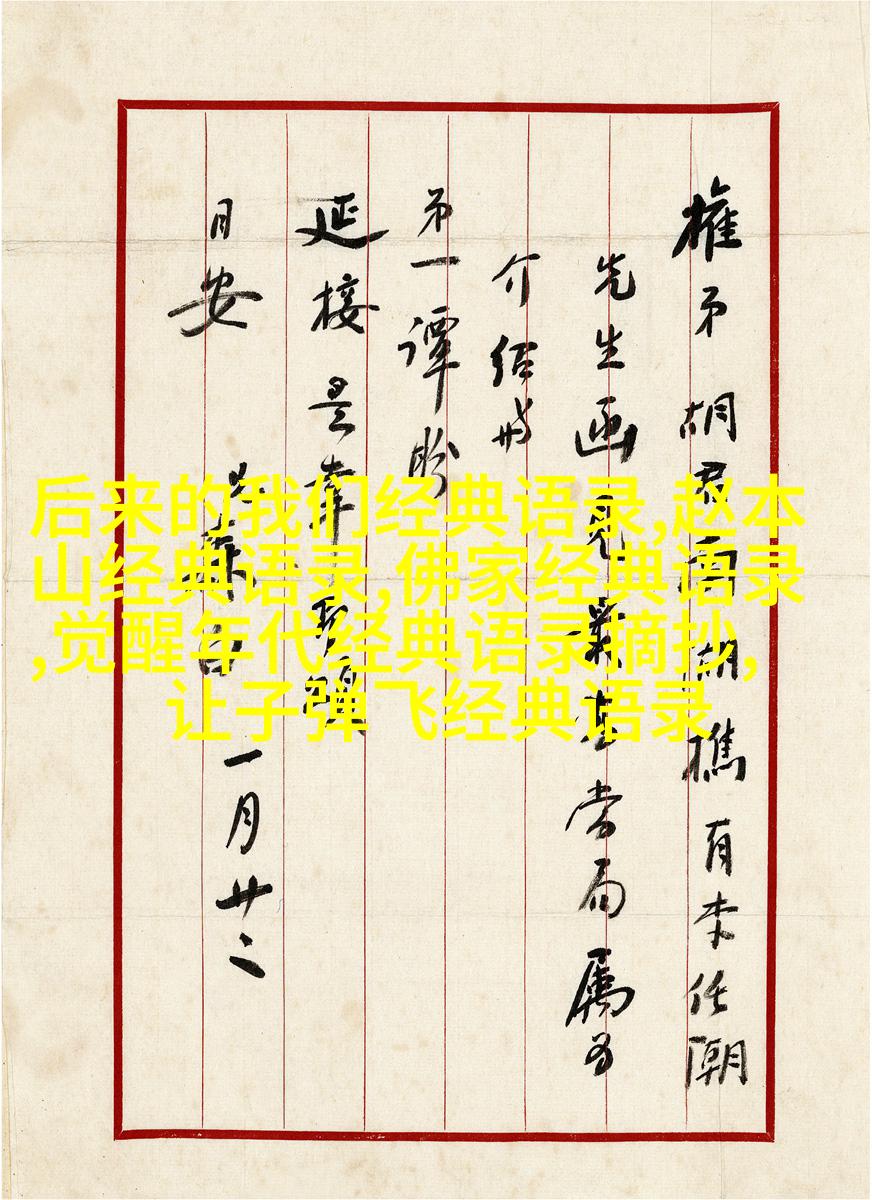 后来的我们经典语录,赵本
山经典语录,佛家经典语录
,觉醒年代经典语录摘抄,
让子弹飞经典语录
弟胡君
胡樵有李任潮
先生函
当局属为
介绍
弟一谭盼
延接是幸
日安
一月廿二